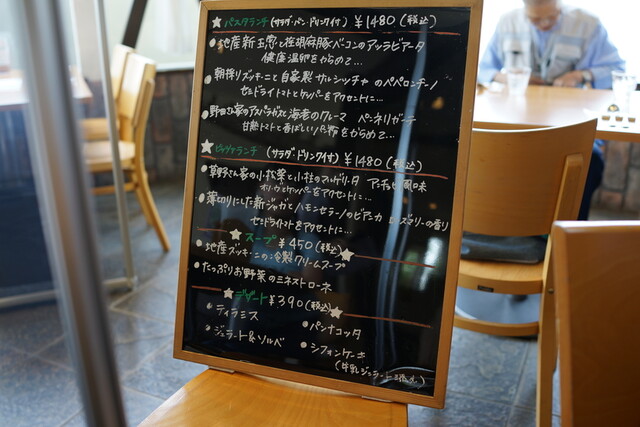 ★パスタランチ (サラダ・パン・ドリンク付) ¥1480 (税込)
●地産新玉葱と箱根麻豚ベーコンのアラビアータ
健康温卵をからめて…
●朝採りズッキーニと自家製サルシッチャのペペロンチーノ
セミドライトマトとケッパーをアクセントに…
●野田さん家のアスパラガスと海老のクリーム ペーネリガーニ
甘熟トマトと香ばしいパン粉をからめて…
★ピッツァランチ (サラダ・ドリンク付) ¥1480 (税込)
さん家の小松菜と小柱のマルゲリータ アンチョビ風味
オリーヴとケッパーをアクセントに…
●薄切りにした新ジャガとハモンセラーノのビアンカ ローズマリーの香り
セミドライトマトをアクセントに…
★スープ ¥450 (税込)★
●地産ズッキーニの冷製クリームスープ
●たっぷりお野菜のミネストローネ
★デザート ¥390 (税込)★
●ティラミス ●パンナコッタ
●ジェラート&ソルベ ●シフォンケーキ
(牛乳ジェラート添え)